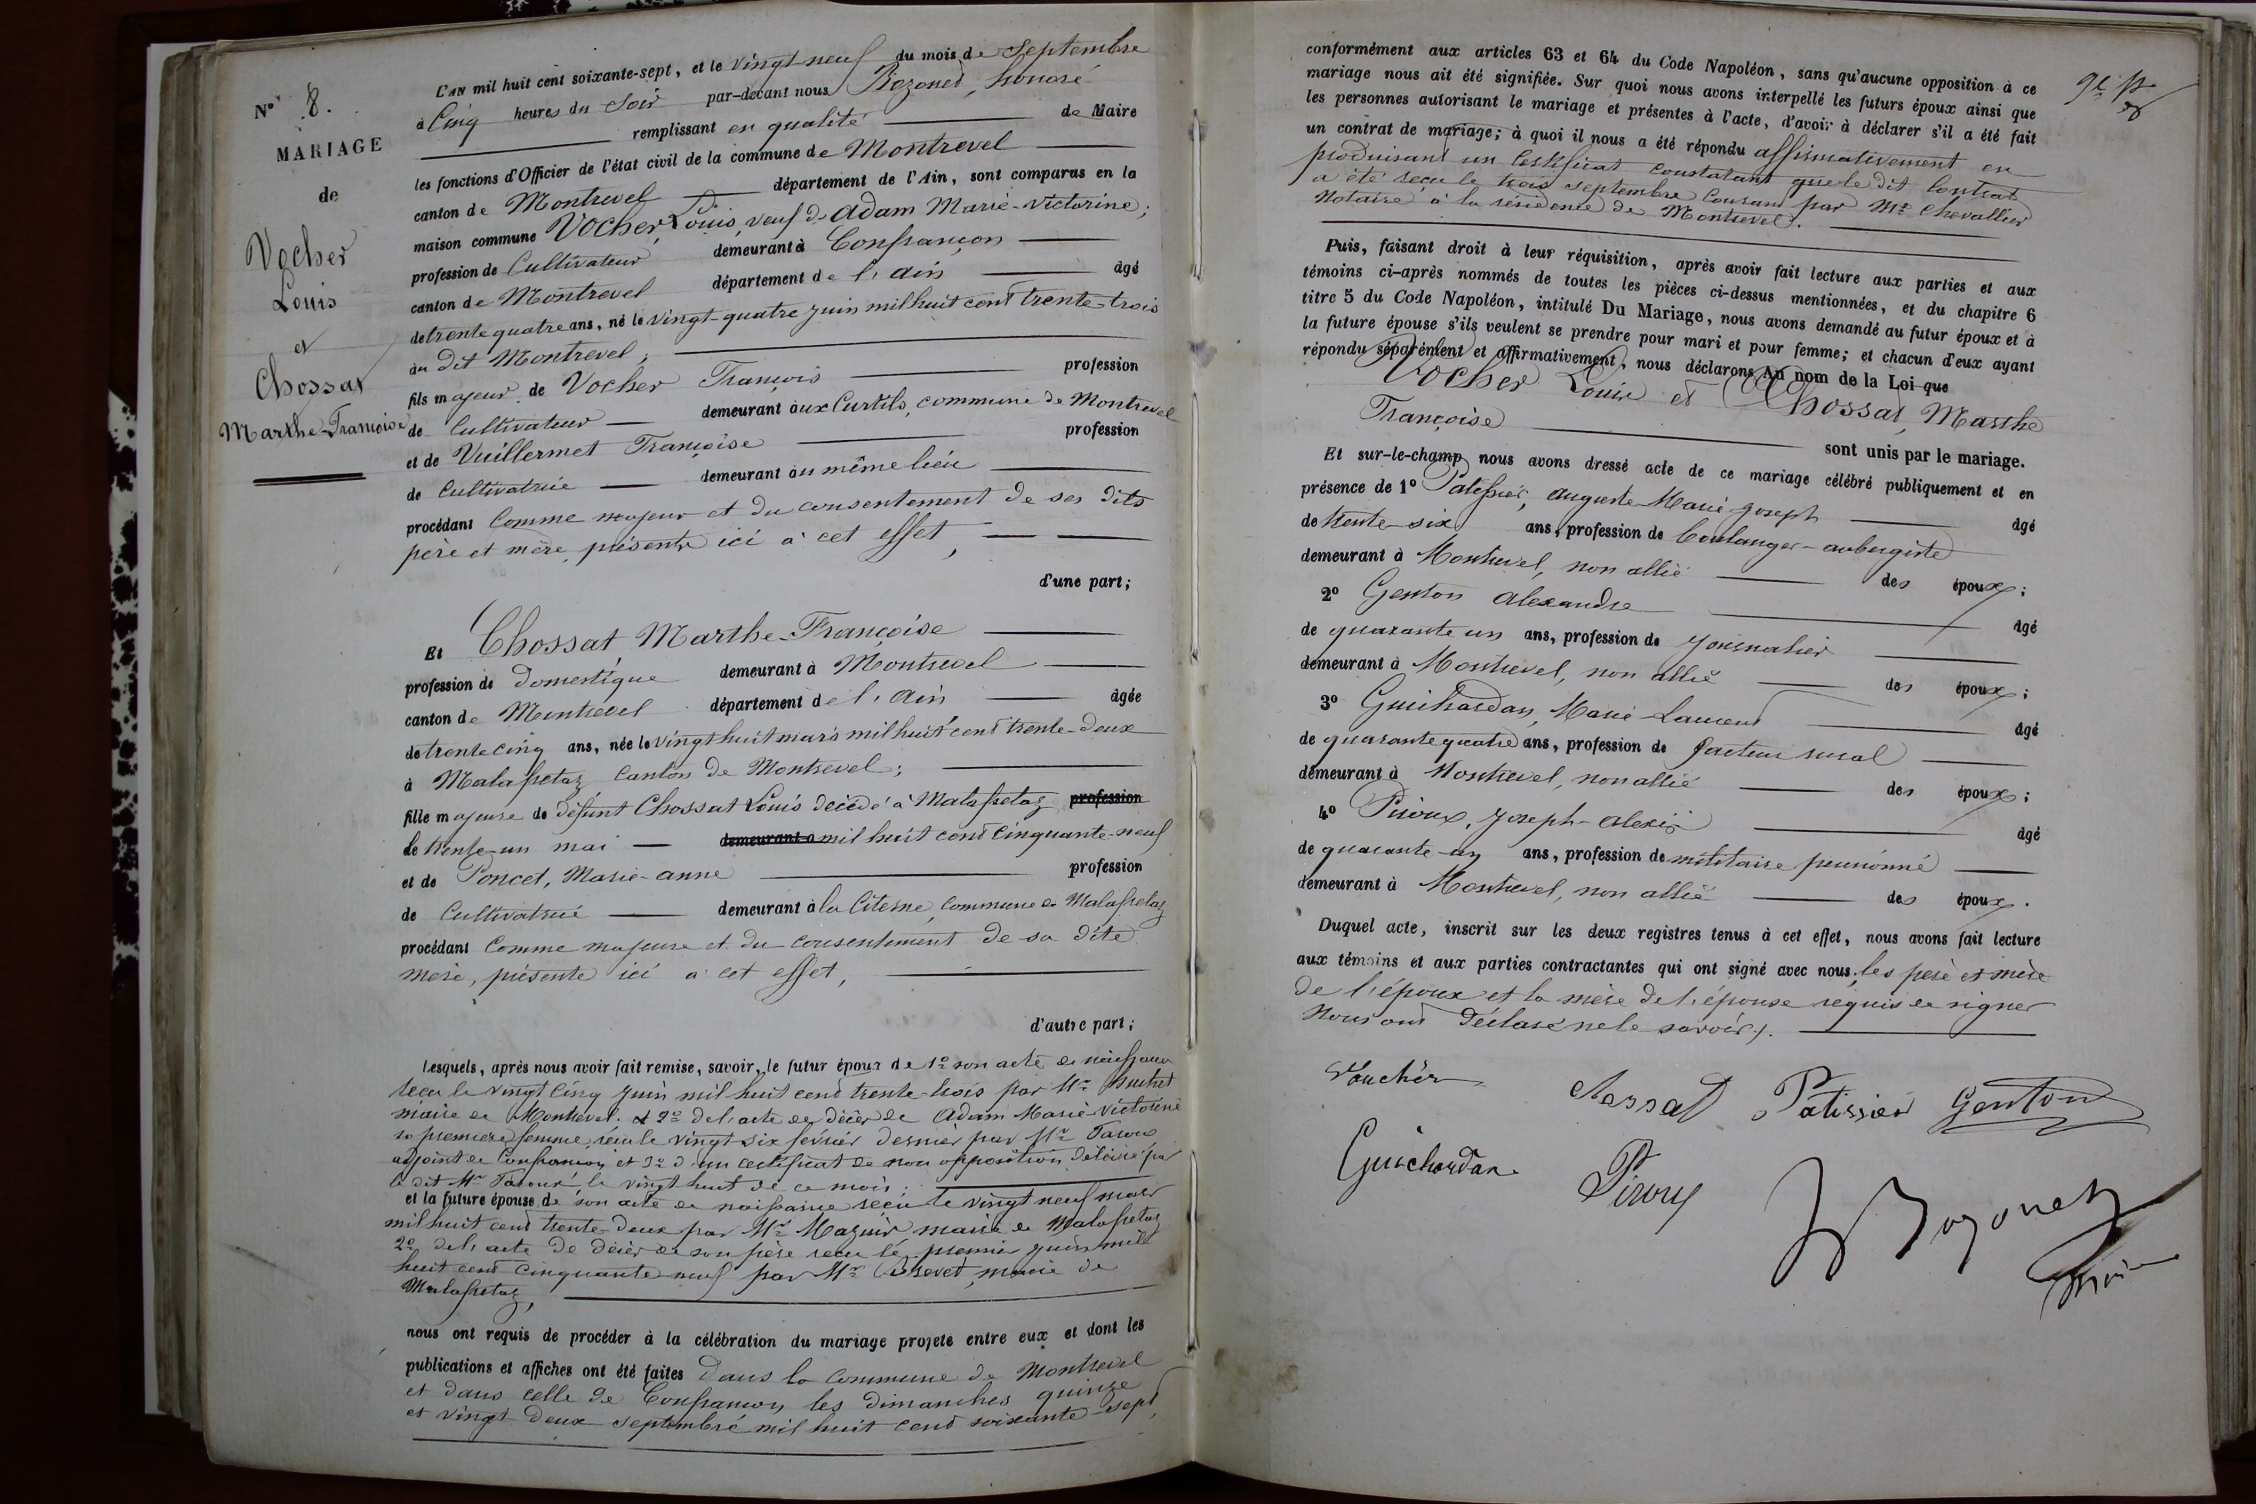 N° 8.
MARIAGE
de
Vocher
Louis
et
Chossat
Marthe-Françoise
L'AN mil huit cent soixante-sept, et le vingt-neuf du mois de Septembre
à Cinq heures du Soir par-devant nous Rozonet, honoré
remplissant en qualité de Maire
les fonctions d'Officier de l'état civil de la commune de Montrevel
canton de Montrevel département de l'Ain, sont comparus en la
maison commune Vocher, Louis, veuf de Adam Marie-Victorine;
profession de Cultivateur demeurant à Confrançon
canton de Montrevel département de l'ain âgé
de trente quatre ans, né le vingt-quatre juin mil huit cent trente-trois
au dit Montrevel,
fils majeur de Vocher François profession
de Cultivateur demeurant aux Curtils, commune de Montrevel
et de Vuillermet Françoise profession
de Cultivatrice demeurant au même lieu
procédant Comme majeur et du consentement de ses dits
père et mère, présents ici à cet effet,
d'une part;
Et Chossat Marthe-Françoise
profession de Domestique demeurant à Montrevel
canton de Montrevel département de l'ain âgée
de trente cinq ans, née le vingt huit mars mil huit cent trente-deux
à Malafretaz canton de Montrevel;
fille majeure de défunt Chossat Louis décédé à Malafretaz profession
le trente-un mai demeurant à mil huit cent cinquante-neuf
et de Poncet, Marie-anne profession
de Cultivatrice demeurant à la Citerne, commune de Malafretaz
procédant Comme majeure et du consentement de sa dite
mère, présente ici à cet effet,
d'autre part;
Lesquels, après nous avoir fait remise, savoir, le futur époux de 1° son acte de naissance
reçu le vingt cinq juin mil huit cent trente-trois par Mr
maire de Montrevel. et 2° de l'acte de décès de Adam Marie-Victorine
sa première femme, reçu le vingt-six février dernier par Mr
adjoint de Confrançon et 3° d'un certificat de non opposition délivré par
le dit Mr le vingt huit de ce mois;
et la future épouse de son acte de naissance reçu le vingt neuf mars
mil huit cent trente-deux par Mr Mazuir, maire de Malafretaz
2° de l'acte de décès de son père reçu le premier juin mil
huit cent cinquante-neuf par Mr Brevet, maire de
Malafretaz,
nous ont requis de procéder à la célébration du mariage projeté entre eux et dont les
publications et affiches ont été faites dans la commune de Montrevel
et dans celle de Confrançon les dimanches quinze
et vingt-deux septembre mil huit cent soixante-sept,
conformément aux articles 63 et 64 du Code Napoléon, sans qu'aucune opposition à ce
mariage nous ait été signifiée. Sur quoi nous avons interpellé les futurs époux ainsi que
les personnes autorisant le mariage et présentes à l'acte, d'avoir à déclarer s'il a été fait
un contrat de mariage; à quoi il nous a été répondu affirmativement en
produisant un Certificat constatant que le dit Contrat
a été reçu le trois septembre courant par Me Chevallier
Notaire à la résidence de Montrevel.
Puis, faisant droit à leur réquisition, après avoir fait lecture aux parties et aux
témoins ci-après nommés de toutes les pièces ci-dessus mentionnées, et du chapitre 6
titre 5 du Code Napoléon, intitulé Du Mariage, nous avons demandé au futur époux et à
la future épouse s'ils veulent se prendre pour mari et pour femme; et chacun d'eux ayant
répondu séparément et affirmativement, nous déclarons Au nom de la Loi que
Vocher Louis et Chossat, Marthe
Françoise sont unis par le mariage.
Et sur-le-champ nous avons dressé acte de ce mariage célébré publiquement et en
présence de 1° Patissier, auguste Marie-joseph âgé
de trente-six ans, profession de boulanger-aubergiste
demeurant à Montrevel, non allié des époux;
2° Genton alexandre âgé
de quarante un ans, profession de journalier
demeurant à Montrevel, non allié des époux;
3° Guichardan, Marie-Laurent âgé
de quarante quatre ans, profession de facteur rural
demeurant à Montrevel, non allié des époux;
4° Piroux, joseph-alexis âgé
de quarante-un ans, profession de militaire pensionné
demeurant à Montrevel, non allié des époux.
Duquel acte, inscrit sur les deux registres tenus à cet effet, nous avons fait lecture
aux témoins et aux parties contractantes qui ont signé avec nous; les père et mère
de l'époux et la mère de l'épouse requis de signer
nous ont déclaré ne le savoir.
Vouchér Chossat Patissier Genton
Guichardan Piroux Rozonet